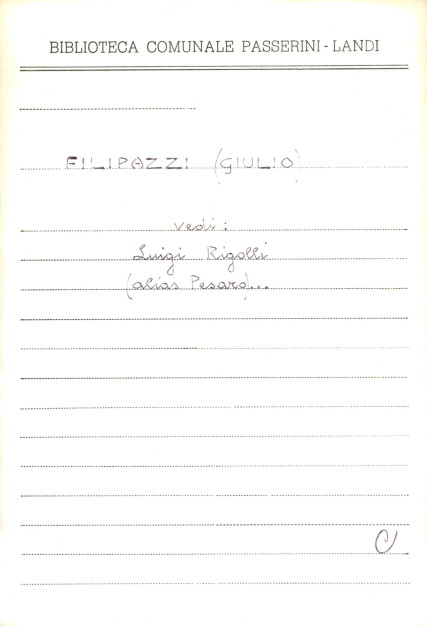 BIBLIOTECA COMUNALE PASSERINI-LANDI
FILIPAZZI (GIULIO)
vedi:
Luigi Rigolli
(alias Pesaro)...
C